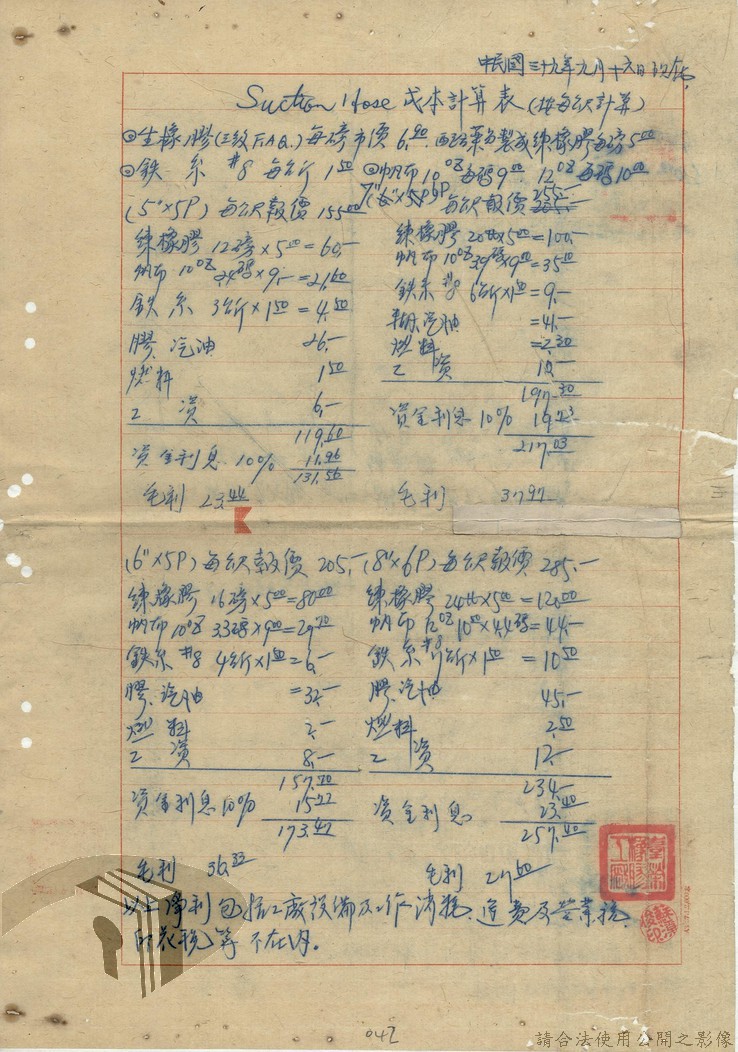 中民國三十九年九月十六日
Suction Hose 成本計算表(按每公尺計算)
◎生橡膠(三級F.A.Q.)每磅市價6.00 配藥另製成練橡膠每磅5.00
◎鉄糸#8 每台斤1.50 ◎帆布10OZ每碼9.00 12OZ每碼10.00
(5"×5P)每公尺報價155.00
練橡膠 12磅×5.00=60.-
帆布10OZ 2.4碼×9.-=21.60
鉄糸 3台斤×1.50=4.50
膠、汽油 26.-
燃料 1.50
工資 6.-
119.60
資金利息10% 11.96
131.56
毛利 23.44
每公尺報價 255.-
練橡膠 20磅×5.00=100.-
帆布10OZ 3.9碼×9.00=35.10
鉄糸#8 6台斤×1.50=9.-
糊、汽油 =41.-
燃料 =2.20
工資 10.-
197.30
資金利息10% 19.73
217.03
毛利 37.97
(6"×5P)每公尺報價205.-
練橡膠 16磅×5.00=80.00
帆布10OZ 3.3碼×9.00=29.70
鉄糸#8 4台斤×1.50=6.-
膠、汽油 =32.-
燃料 2.-
工資 8.-
157.70
資金利息10% 15.77
173.47
毛利 36.33
(8"×6P)每公尺報價285.-
練橡膠 24磅×5.00=120.00
帆布12OZ 10.00×4.4碼=44.-
鉄糸#8 7台斤×1.50=10.50
膠、汽油 45.-
燃料 2.50
工資 12.-
234.-
資金利息 23.40
257.40
毛利 27.60
以上淨利包括工廠設備及工作消耗、運費及營業稅、
印花稅等不在內。
042
請合法使用公開之影像